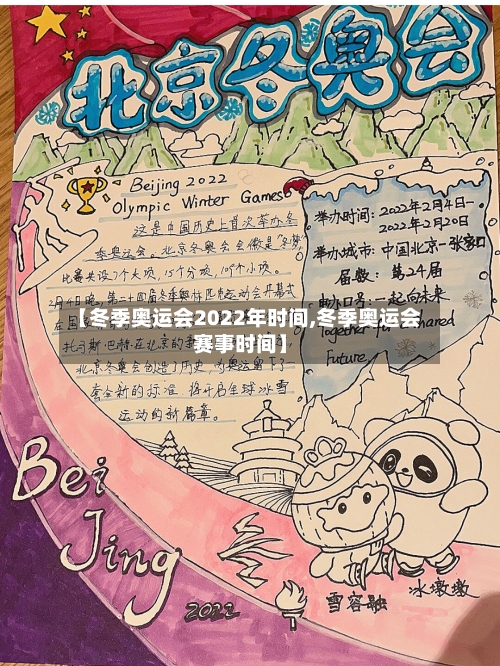 北京冬奥会
Beijing 2022
Olympic Winter Games
这是中国历史上首次举办冬
季奥运会。北京冬奥会会徽是"冬梦"
比赛共设7个大项,15个分项,109个小项。
【冬季奥运会2022年时间,冬季奥运会
赛事时间】
北京冬奥会创造了历史,为奥运留下了一
套全新的标准 将开启全球冰雪
运动的新篇章。
举办时间:2022年2月4日-
2022年2月20日
举办城市:中国北京-张家口
届数:第24届
一起向未来
Together for
Shared
Future
Bei
Jing
2022
雪容融
冰墩墩